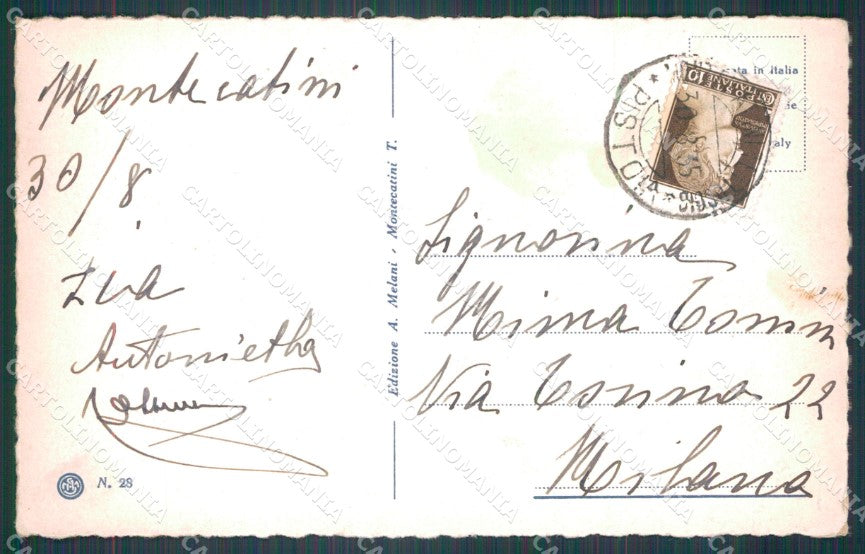 Montecatini
30/8
Zia
Antonietta
N. 28
Edizione A. Melani - Montecatini T.
in Italia
PISTOIA
35
POSTE
ITALIANE
CENT 10
Signorina
Mima Tomm
Via Torino 22
Milano
CARTOLINOMANIA